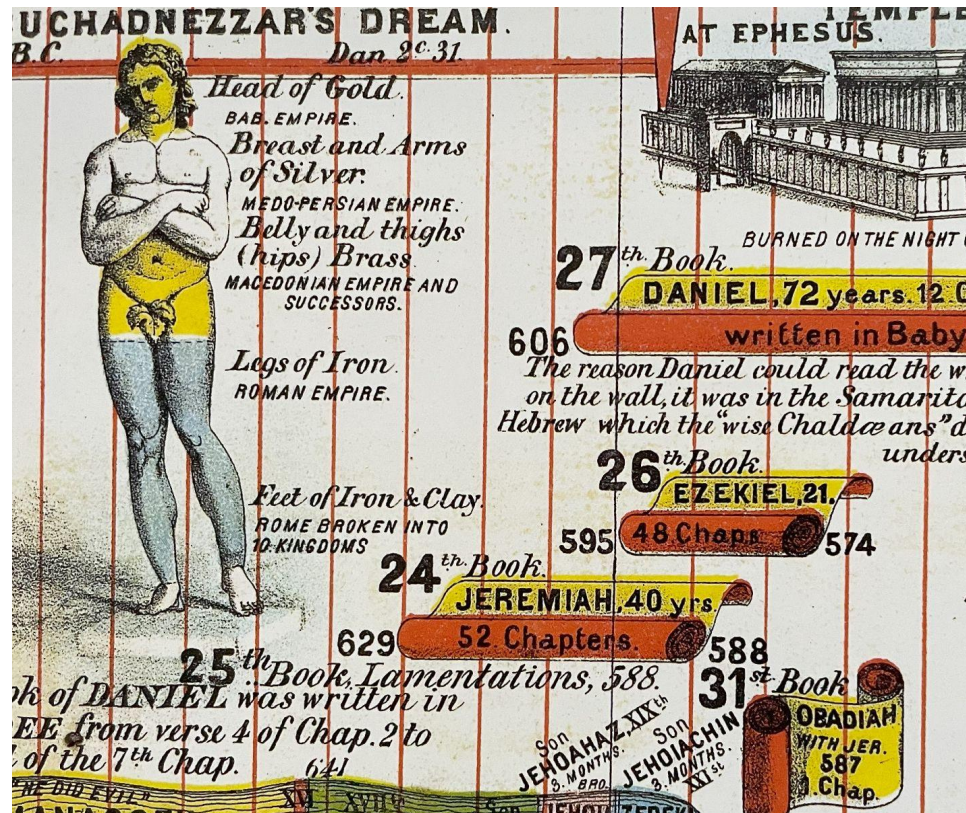 UCHADNEZZAR'S DREAM.
B.C. Dan. 2c. 31.
Head of Gold.
BAB. EMPIRE.
Breast and Arms
of Silver.
MEDO-PERSIAN EMPIRE.
Belly and thighs
(hips) Brass.
MACEDONIAN EMPIRE AND
SUCCESSORS.
Legs of Iron.
ROMAN EMPIRE.
Feet of Iron & Clay.
ROME BROKEN INTO
10 KINGDOMS
TEMPLE
AT EPHESUS.
BURNED ON THE NIGHT
27th. Book.
DANIEL, 72 years. 12
606 written in Baby
The reason Daniel could read the w
on the wall, it was in the Samarita
Hebrew which the "wise Chaldæans" d
unders
26th. Book.
EZEKIEL, 21.
595 48 Chaps 574
24th. Book.
JEREMIAH, 40 yrs.
629 52 Chapters. 588
25th. Book, Lamentations, 588.
ok of DANIEL was written in
EE from verse 4 of Chap. 2 to
of the 7th Chap.
641
31st Book
OBADIAH
WITH JER.
587
1. Chap.
Son
JEHOAHAZ, XIXth
3. MONTHS.
BRO.
Son
JEHOIACHIN
3. MONTHS.
XIst
"HE DID EVIL"
XVI XVIIth Son